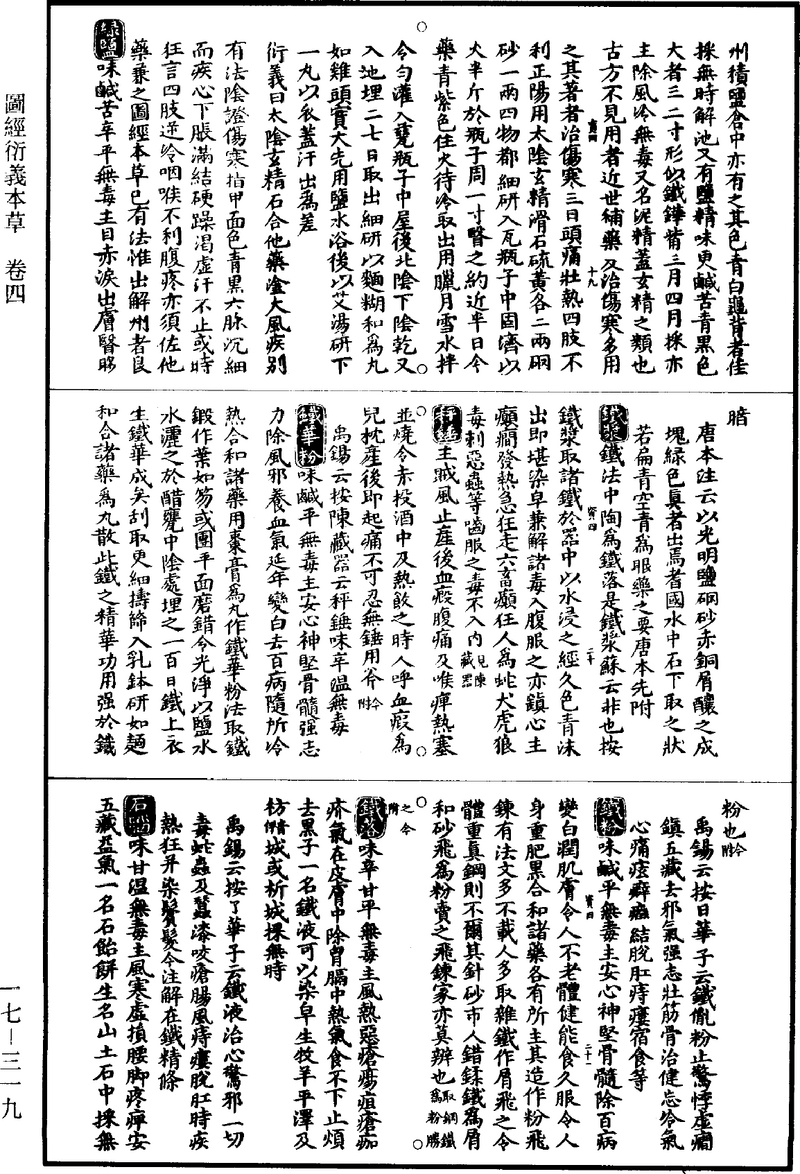 圖經衍義本草　卷四
州積鹽倉中亦有之其色青白龜背者佳
採無時解池又有鹽精味更鹹苦青黑色
大者三二寸形似鐵鏵觜三月四月採亦
主除風冷無毒又名泥精蓋玄精之類也
古方不見用者近世補藥及治傷寒多用
之其著者治傷寒三日頭痛壯熱四肢不
利正陽用太陰玄精滑石硫黃各二兩硇
砂一兩四物都細研入瓦瓶子中固濟以
火半斤於瓶子周一寸瞥之約近半日令
藥青紫色住火待冷取出用臘月雪水拌
令勻灌入甕瓶子中屋後北陰下陰乾又
入池埋二七日取出細研以麵糊和為丸
如雞頭實大先用鹽水浴後以艾湯研下
一丸以衣蓋汗出為差
衍義曰太陰玄精石合他藥塗大風疾別
有法陰證傷寒指甲面色青黑六脉沉細
而疾心下脹滿結硬躁渴虛汗不止或時
狂言四肢逆冷咽喉不利腹疼亦須佐他
藥兼之圖經本草已有法惟出解州者良
綠鹽味鹹苦辛平無毒主目赤淚出膚瞖眵
暗
唐本注云以光明鹽硇砂赤銅屑釀之成
塊綠色真者出焉耆國水中石下取之狀
若扁青空青為眼藥之要唐本先附
鐵漿鐵法中陶為鐵落是鐵漿蘇云非也按
鐵漿取諸鐵於器中以水浸之經久色青沫
出即堪染皂兼解諸毒入腹服之亦鎮心主
癲癇發熱急狂走六畜癲狂人為蛇犬虎狼
毒刺惡蟲等嚙服之毒不入內見陳藏器
秤錘主賊風止產後血瘕腹痛及喉痺熱塞
並燒令赤投酒中及熱飲之時人呼血瘕為
兒枕產後即起痛不可忍無錘用斧今附
禹錫云按陳藏器云秤錘味辛溫無毒
鐵華粉味鹹平無毒主安心神堅骨髓強志
力除風邪養血氣延年變白去百病隨所冷
熱合和諸藥用棗膏為丸作鐵華粉法取鐵
鍛作葉如笏或團平面磨錯令光淨以鹽水
水灑之於醋甕中陰處埋之一百日鐵上衣
生鐵華成矣刮取更細擣篩入乳鉢研如麵
和合諸藥為丸散此鐵之精華功用强於鐵
粉也今附
禹錫云按日華子云鐵胤粉止驚悸虛癇
鎮五藏去邪氣強志壯筋骨治健忘冷氣
心痛痃癖癥結脫肛痔瘻宿食等
鐵粉味鹹平無毒主安心神堅骨髓除百病
變白潤肌膚令人不老體健能食久服令人
身重肥黑合和諸藥各有所主其造作粉飛
鍊有法文多不載人多取雜鐵作屑飛之令
體重真鋼則不爾其針砂市人錯鍒鐵為屑
和砂飛為粉賣之飛鍊家亦莫辨也取鋼鐵為粉勝之今附
鐵落味辛甘平無毒主風熱惡瘡瘍疽瘡痂
疥氣在皮膚中除胷膈中熱氣食不下止煩
去黑子一名鐵液可以染皂生牧羊平澤及
枋城或析城採無時
禹錫云按了華子云鐵液治心驚邪一切
毒蛇蟲及蠶漆咬瘡腸風痔瘻脫肛時疾
熱狂幷染鬚髮今注解在鐵精條
石腦味甘溫無毒主風寒虛損腰脚疼痺安
五藏益氣一名石飴餅生名山土石中採無
一七—三一九